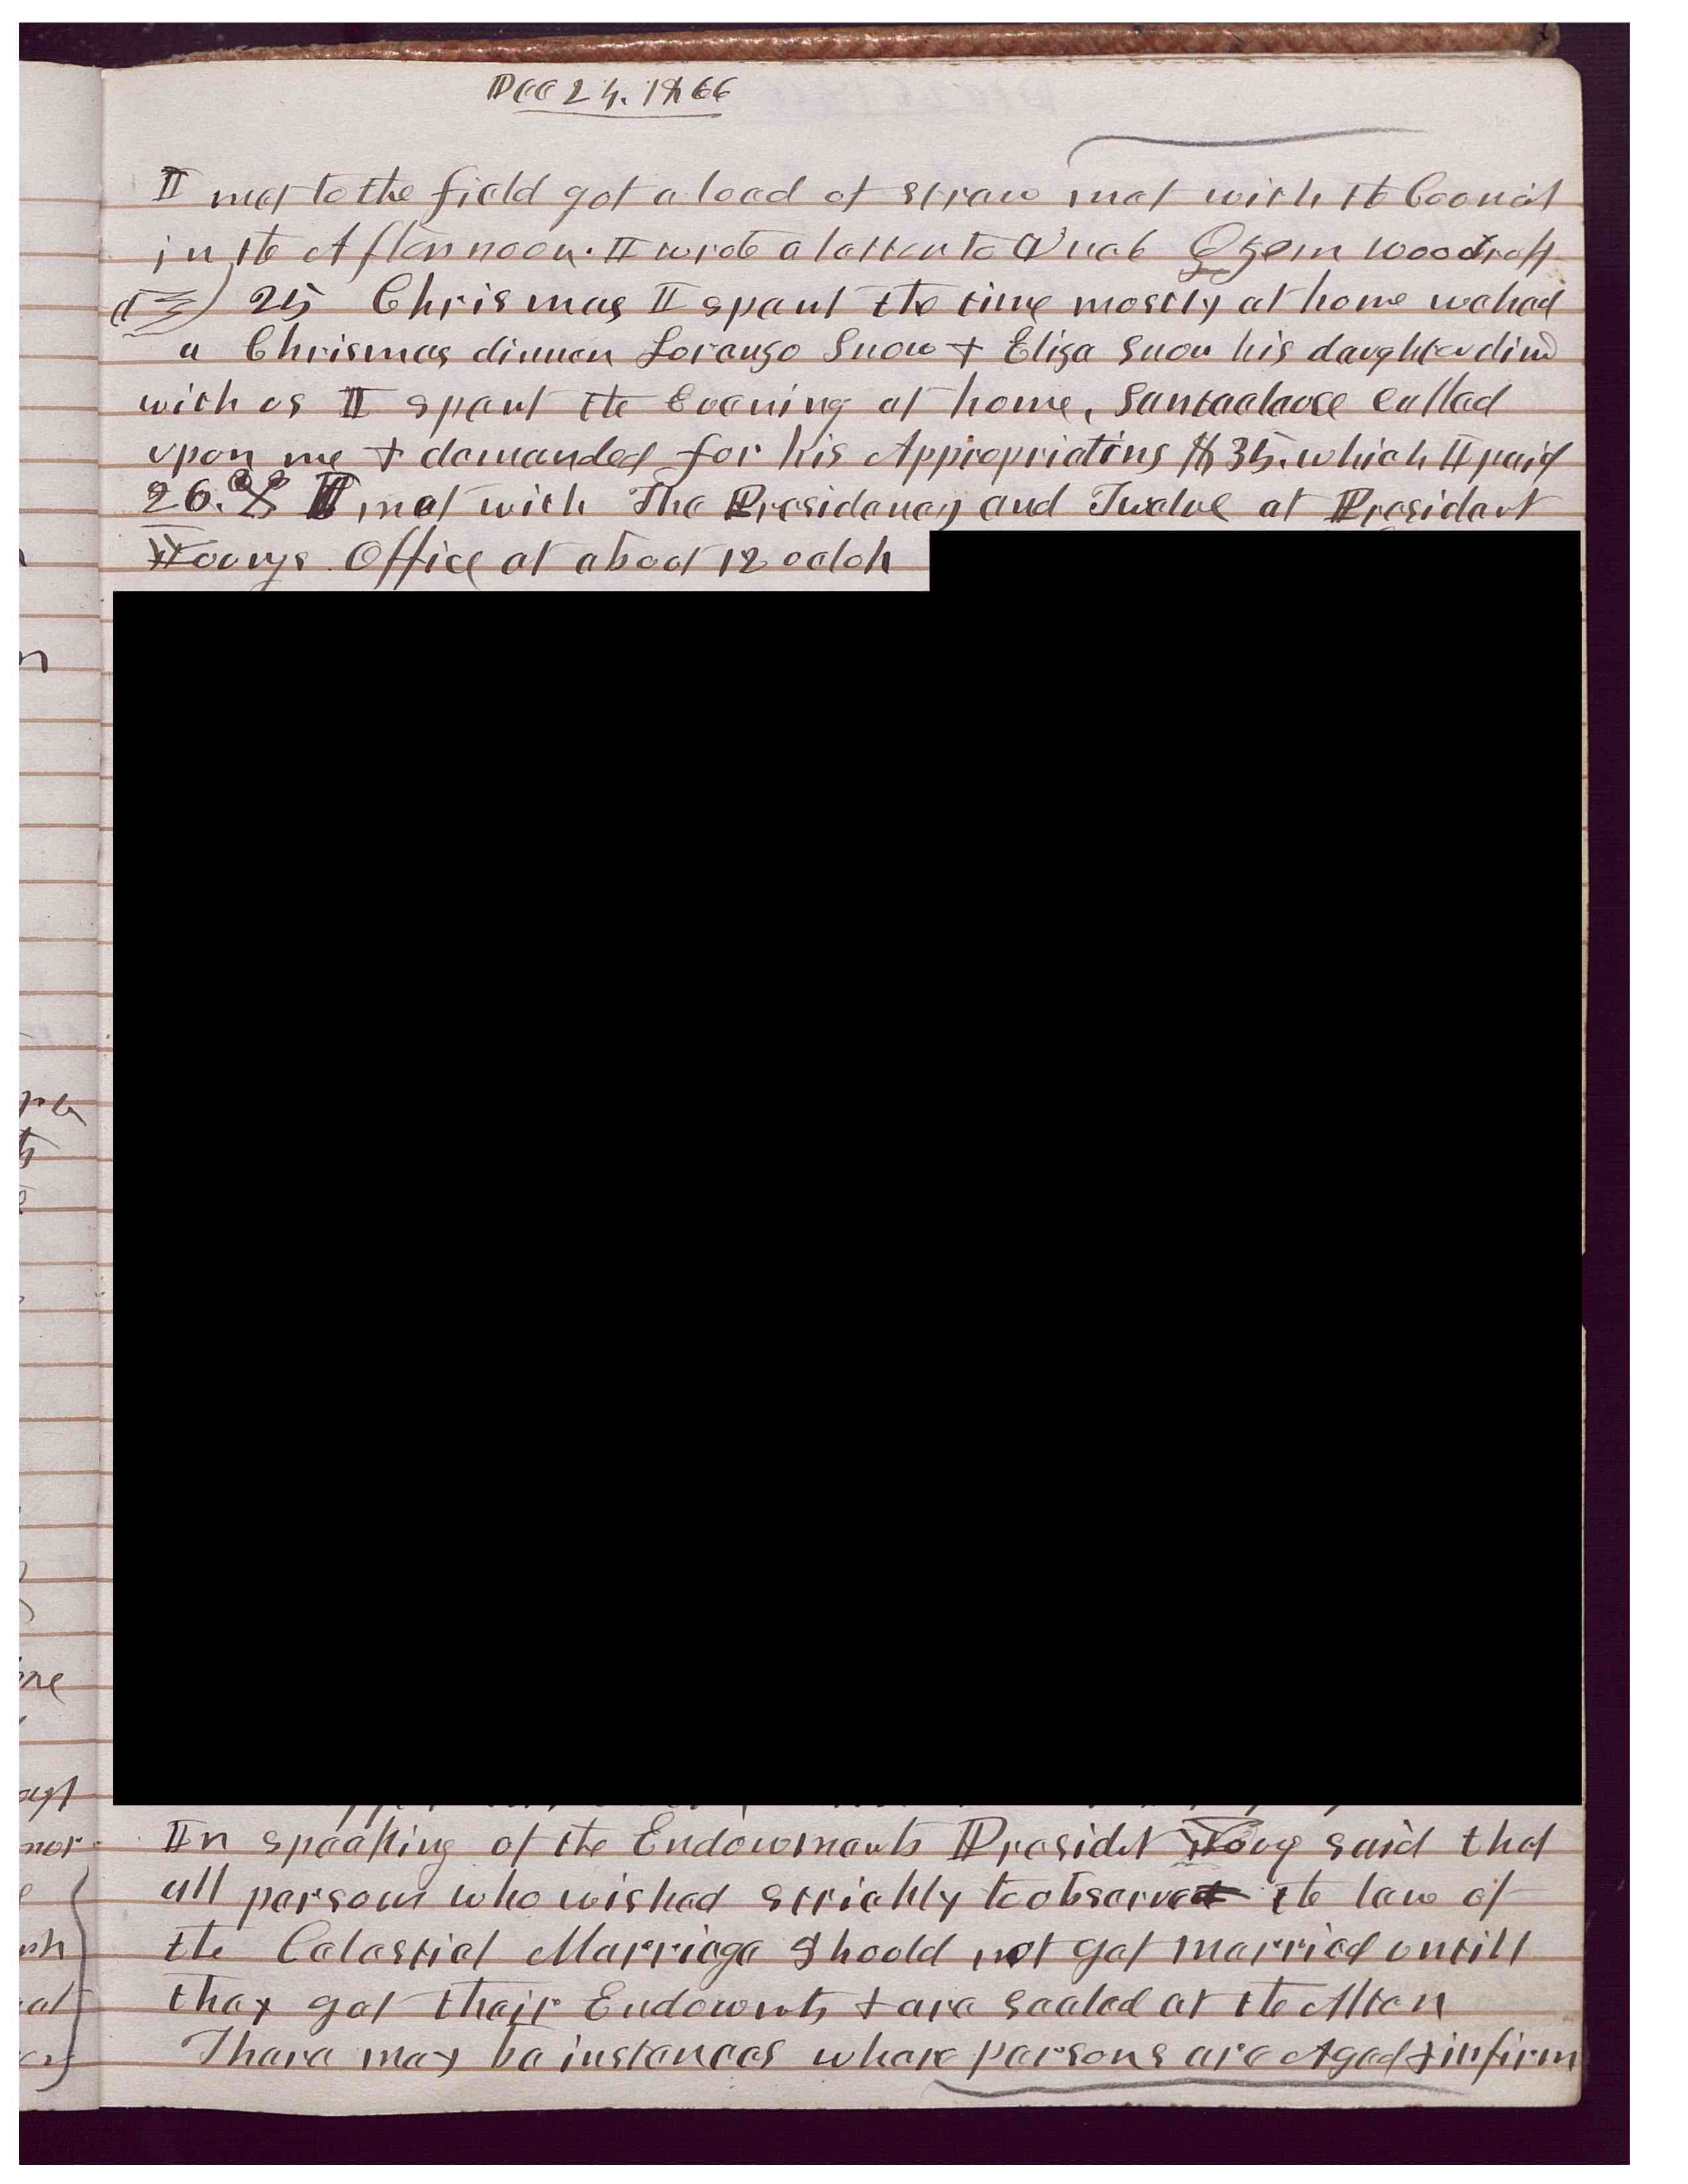 Dec 24. 1866
I met to the field got a load of straw met with the Council
in the Afternoon. I wrote a letter to Ozem Woodruff
25 Chrismas I spent the time mostly at home we had
a Chrismas dinner Lorenzo Snow + Eliza Snow his daughter dined
with us I spent the Evening at home, Santaclause Called
upon me + demanded for his Appropriations $35. which I paid
26. I met with The Presidency and Twelve at President
Youngs Office at about 12 oclok
In speaking of the Endowments Presidet Young said that
all persons who wished strickly to observe the law of
the Celestial Marriage Should not get married untill
they get their Endowmts + are Sealed at the Altar
There may be instances where persons are Aged + infirm